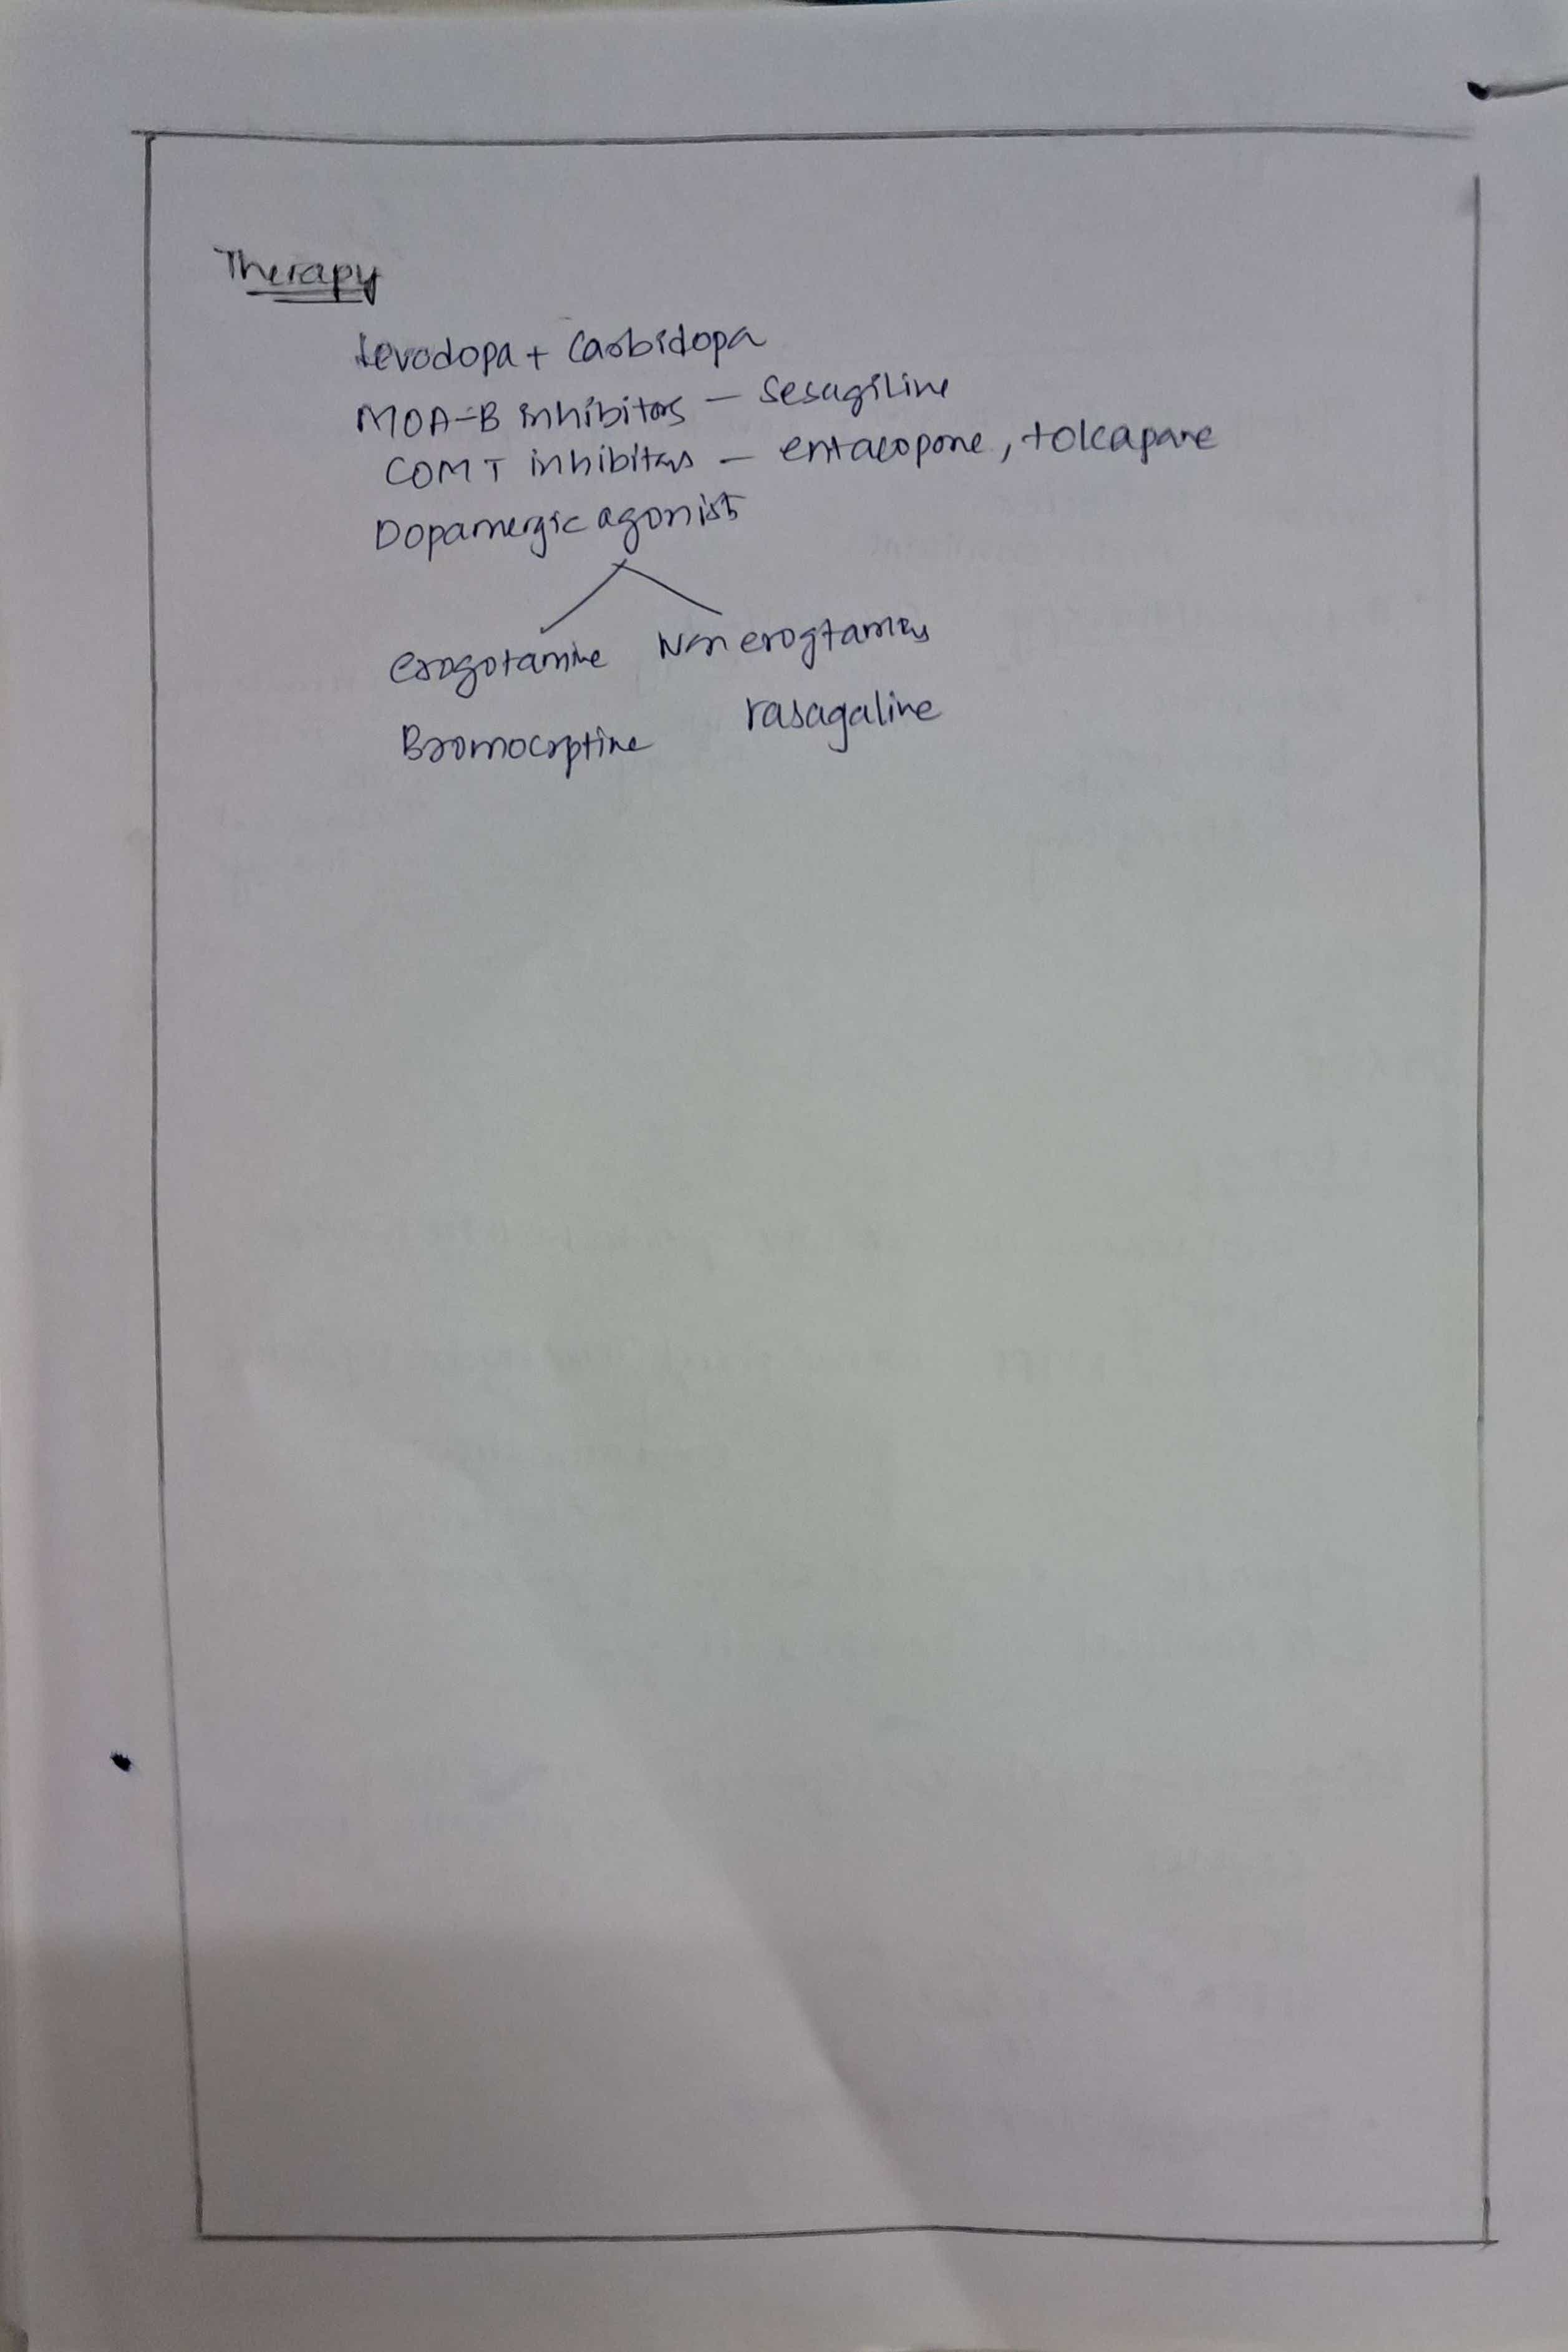 Therapy
Levodopa + Carbidopa
MOA-B inhibitors - Sesagiline
COMT inhibitors - entacopone, tolcapare
Dopamergic agonist
erogotamine Non erogtamies
rasagaline
Bromocrptine